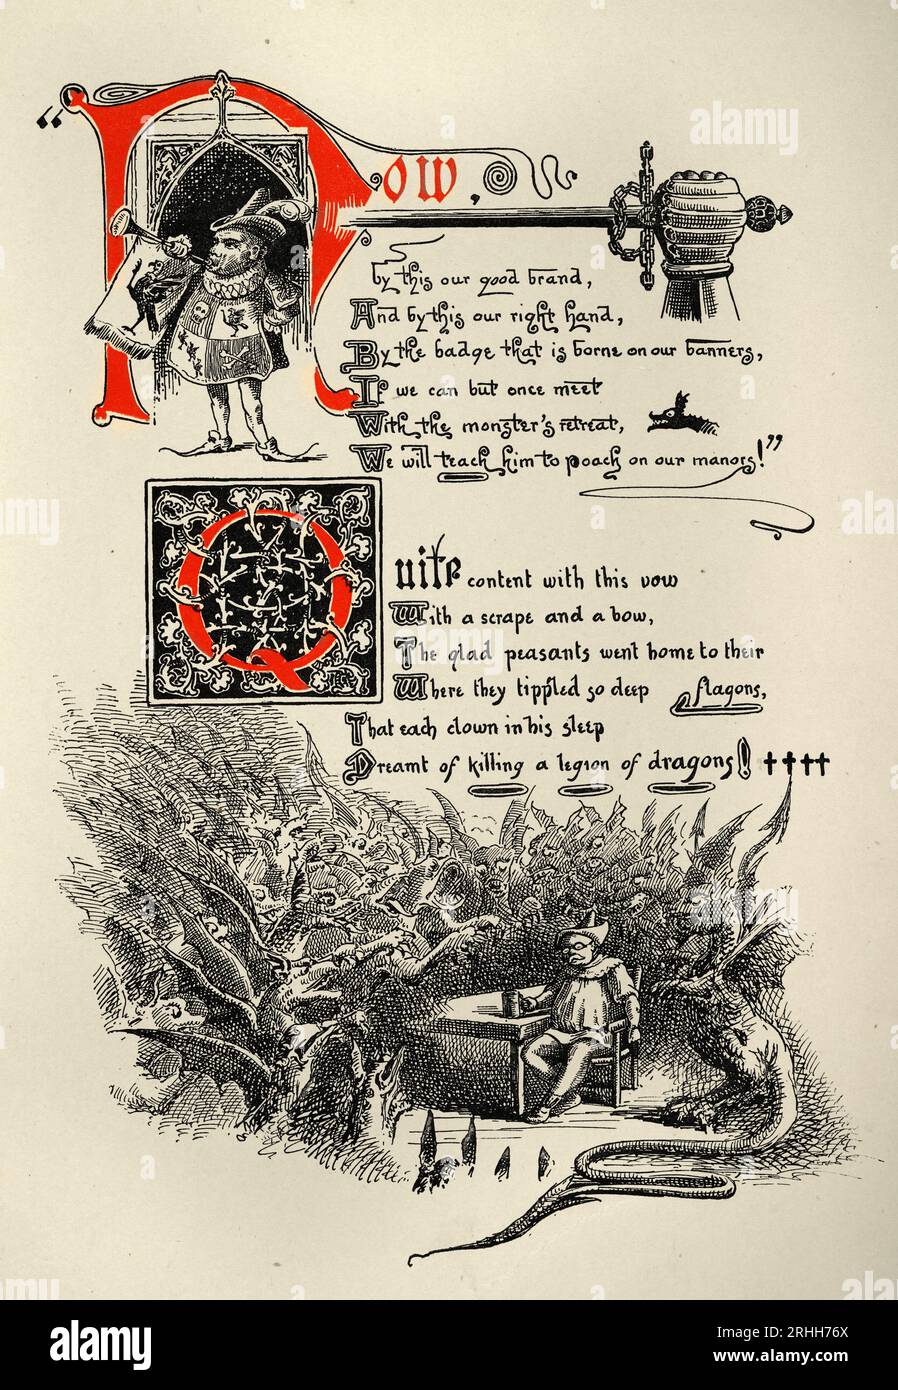 "Now,
by this our good brand,
And by this our right hand,
By the badge that is borne on our banners,
If we can but once meet
With the monster's retreat,
We will teach him to poach on our manors!"
Quite content with this vow
With a scrape and a bow,
The glad peasants went home to their
Where they tippled so deep flagons,
That each clown in his sleep
Dreamt of killing a legion of dragons!
alamy
alamy
Image ID: 2RHH76X
www.alamy.com